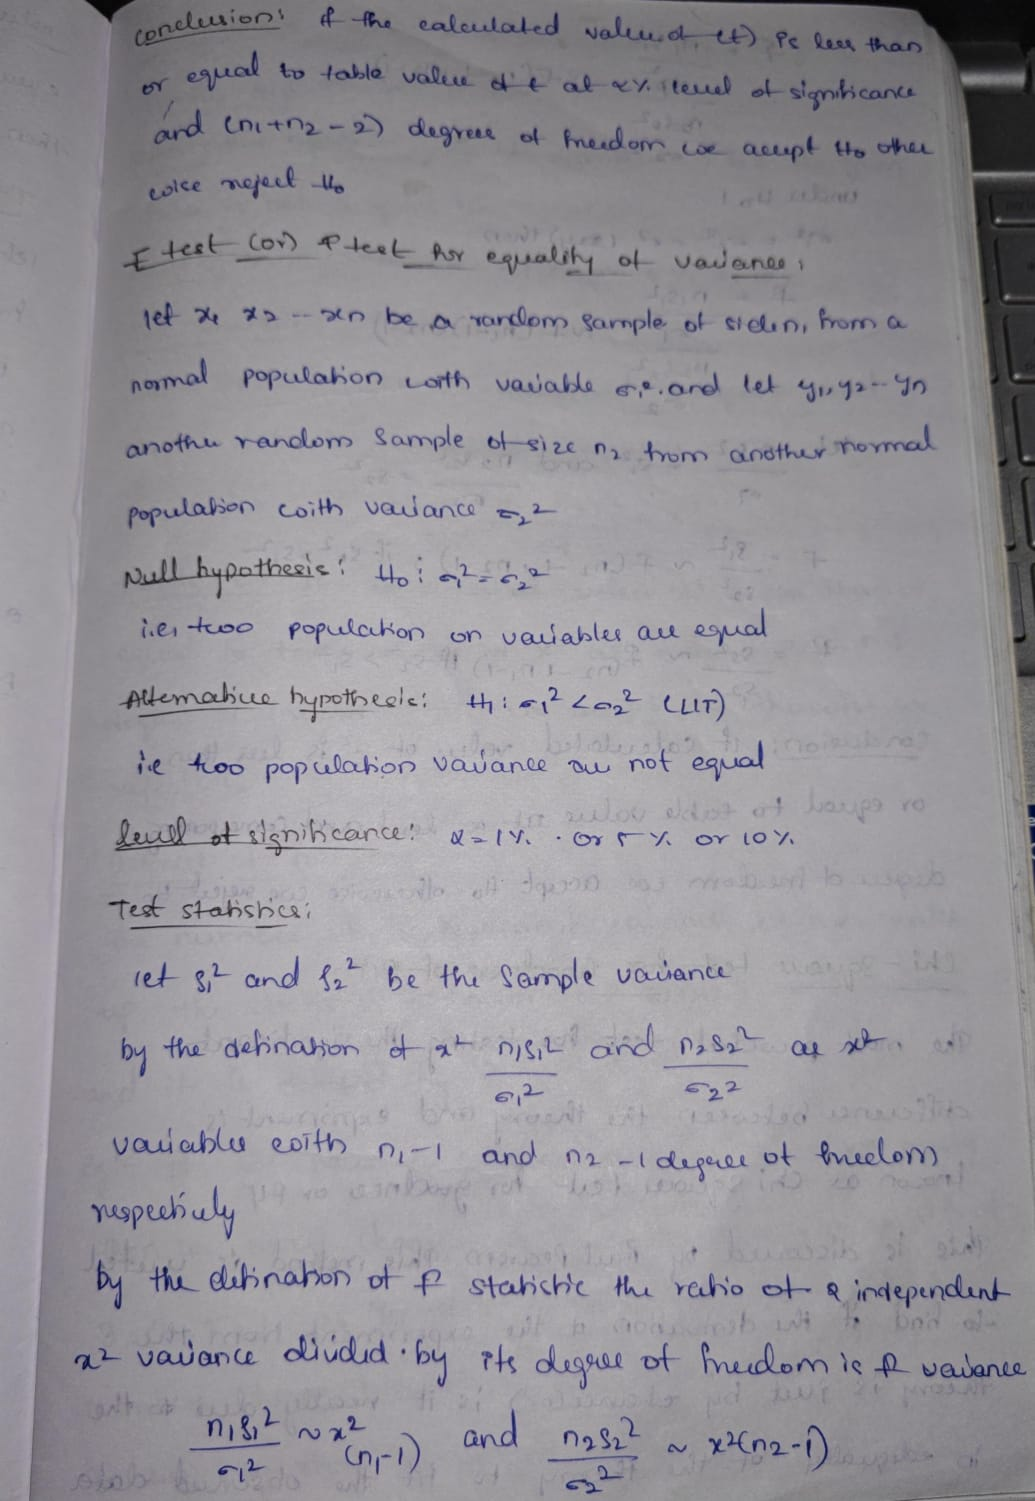 conclusion: if the calculated value of (t) is less than
or equal to table value of t at α% level of significance
and (n1+n2-2) degree of freedom we accept H0 other
wise reject H0
F test (or) F test for equality of variance:
let x1 x2 -- xn be a random sample of size n1 from a
normal population with variable σ1². and let y1, y2 -- yn
another random sample of size n2 from another normal
population with variance σ2²
Null hypothesis: H0: σ1² = σ2²
i.e, two population on variables are equal
Alternative hypothesis: H1: σ1² < σ2² (LIT)
i.e two population variance are not equal
level of significance: α = 1% . or 5% or 10%
Test statistics:
let S1² and S2² be the sample variance
by the defination of x² n1S1²/σ1² and n2S2²/σ2² as x²
variables with n1-1 and n2-1 degree of freedom
respectively
by the defination of F statistic the ratio of 2 independent
x² variance divided by its degree of freedom is F variance
n1S1²/σ1² ~ x²(n1-1) and n2S2²/σ2² ~ x²(n2-1)